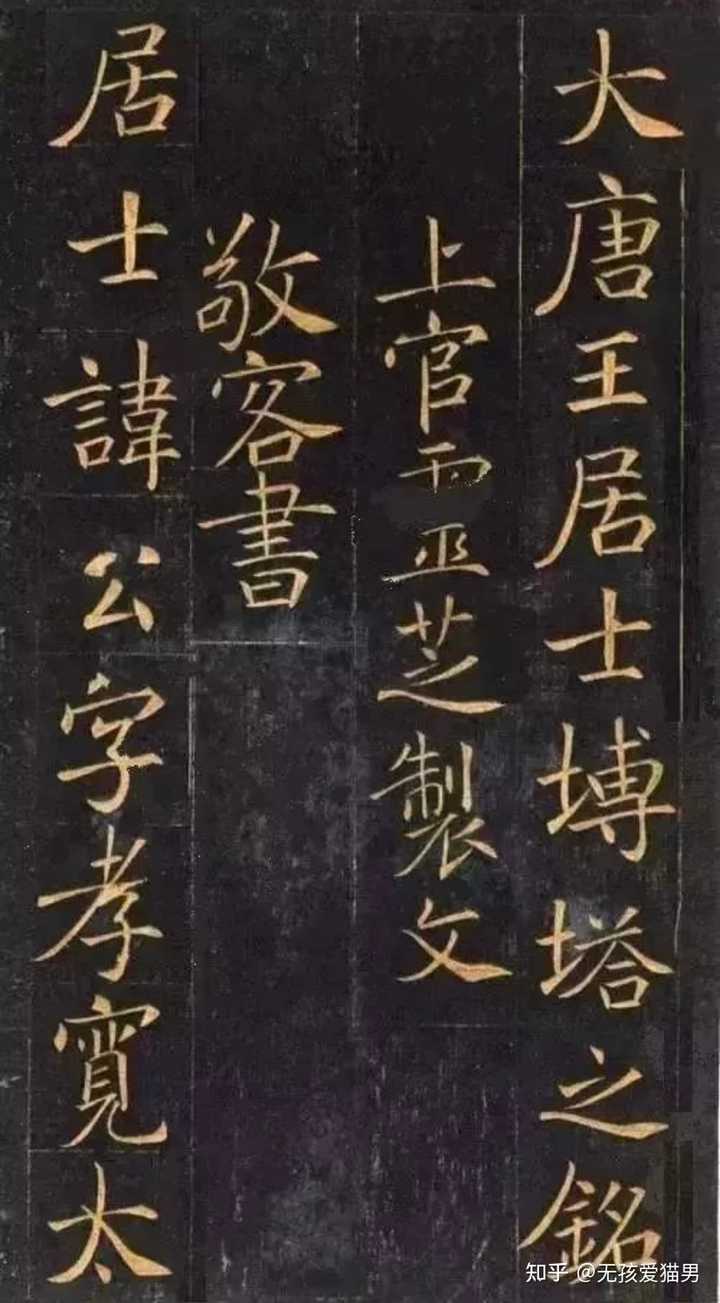 大唐王居士塼塔之銘
上官靈芝製文
敬客書
居士諱公字孝寬太
知乎 @无孩爱猫男